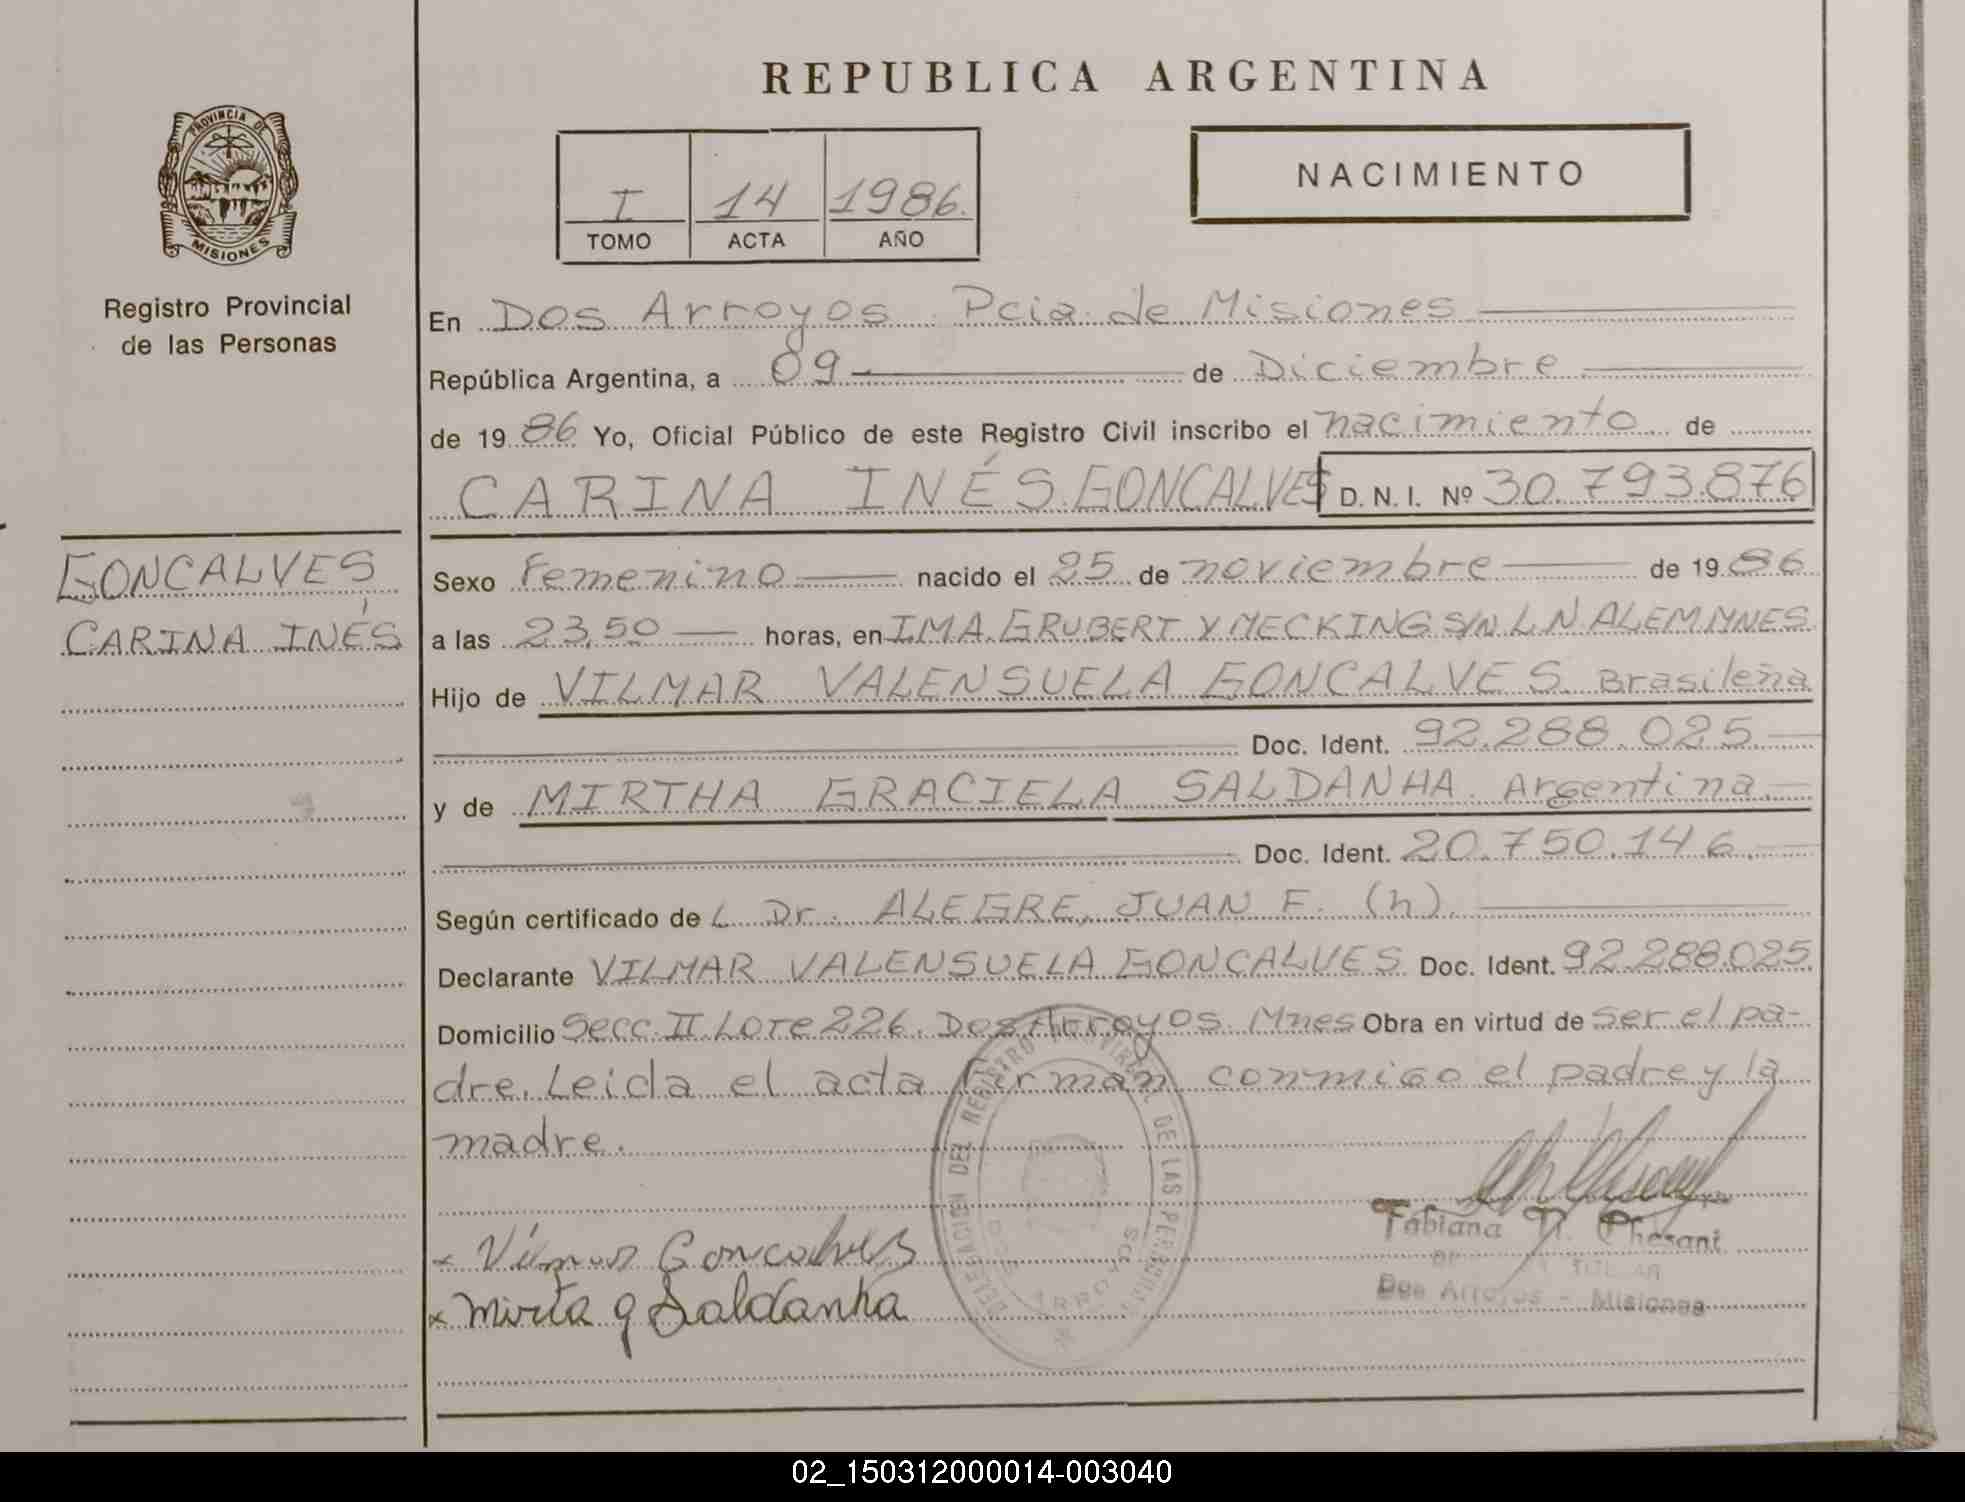 REPUBLICA ARGENTINA
PROVINCIA DE
MISIONES
Registro Provincial
de las Personas
I 14 1986.
TOMO ACTA AÑO
NACIMIENTO
En Dos Arroyos Pcia. de Misiones
República Argentina, a 09 de Diciembre
de 1986 Yo, Oficial Público de este Registro Civil inscribo el nacimiento de
CARINA INÉS GONCALVES D. N. I. Nº 30.793.876
GONCALVES
CARINA INÉS
Sexo Femenino nacido el 25 de noviembre de 1986
a las 23,50 horas, en I.M.A. GRUBERT Y MECKING S/N L N ALEM MNES
Hijo de VILMAR VALENSUELA GONCALVES Brasileña
Doc. Ident. 92.288.025
y de MIRTHA GRACIELA SALDANHA. Argentina
Doc. Ident. 20.750.146
Según certificado de L Dr. ALEGRE, JUAN F. (h).
Declarante VILMAR VALENSUELA GONCALVES Doc. Ident. 92.288.025
Domicilio Secc. II Lote 226. Dos Arroyos Mnes Obra en virtud de ser el pa-
dre. Leida el acta firman conmigo el padre y la
madre.
DELEGACION DEL REGISTRO PROVINCIAL DE LAS PERSONAS
DOS ARROYOS
x Vilmar Goncalves
x Mirta g Saldanha
Fabiana N. Chesani
TITULAR
Dos Arroyos - Misiones
02_150312000014-003040